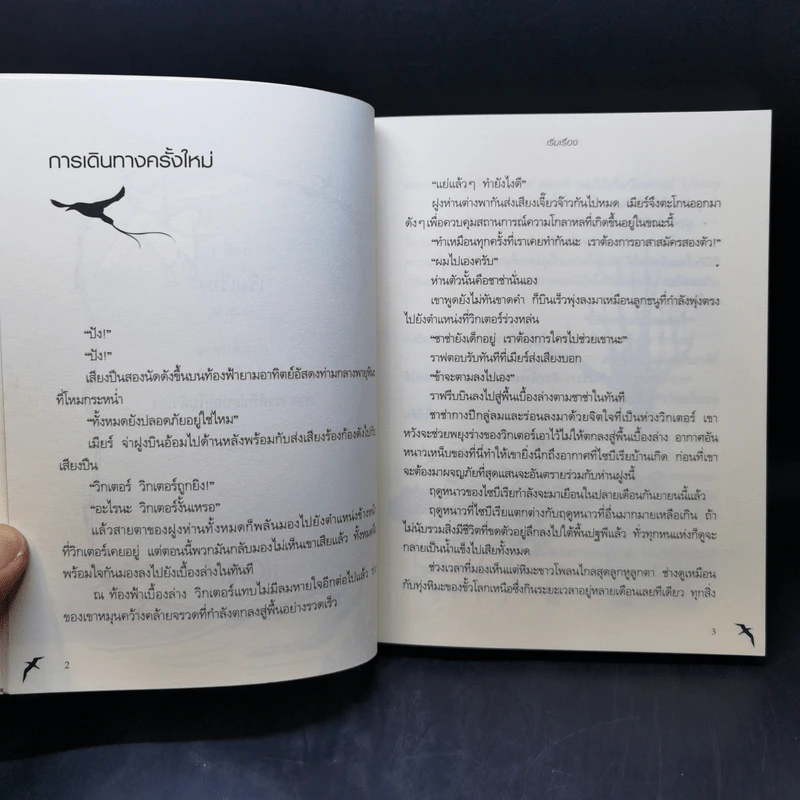 การเดินทางครั้งใหม่
“ปัง!”
“ปัง!”
เสียงปืนสองนัดดังขึ้นบนท้องฟ้ายามอาทิตย์อัสดงท่ามกลางพายุหิมะ
ที่โหมกระหน่ำ
“ทั้งหมดยังปลอดภัยอยู่ใช่ไหม”
เมียร์ จ่าฝูงบินอ้อมไปด้านหลังพร้อมกับส่งเสียงร้องก้องดังไปกับ
เสียงปืน
“วิกเตอร์ วิกเตอร์ถูกยิง!”
“อะไรนะ วิกเตอร์งั้นเหรอ”
แล้วสายตาของฝูงห่านทั้งหมดก็พลันมองไปยังตำแหน่งข้าง
ที่วิกเตอร์เคยอยู่ แต่ตอนนี้พวกมันกลับมองไม่เห็นเขาเสียแล้ว ทั้งหมด
พร้อมใจกันมองลงไปยังเบื้องล่างในทันที
ณ ท้องฟ้าเบื้องล่าง วิกเตอร์แทบไม่มีลมหายใจอีกต่อไปแล้ว
ของเขาหมุนคว้างคล้ายจรวดที่กำลังตกลงสู่พื้นอย่างรวดเร็ว
2
เริ่มเรื่อง
“แย่แล้วๆ ทำยังไงดี”
ฝูงห่านต่างพากันส่งเสียงเจี๊ยวจ๊าวกันไปหมด เมียร์จึงตะโกนออกมา
ดังๆ เพื่อควบคุมสถานการณ์ความโกลาหลที่เกิดขึ้นอยู่ในขณะนี้
“ทำเหมือนทุกครั้งที่เราเคยทำกันนะ เราต้องการอาสาสมัครสองตัว!”
“ผมไปเองครับ”
ห่านตัวนั้นคือชาช่านั่นเอง
เขาพูดยังไม่ทันขาดคำ ก็บินเร็วพุ่งลงมาเหมือนลูกธนูที่กำลังพุ่งตรง
ไปยังตำแหน่งที่วิกเตอร์ร่วงหล่น
“ชาช่ายังเด็กอยู่ เราต้องการใครไปช่วยเขานะ”
ราฟตอบรับทันทีที่เมียร์ส่งเสียงบอก
“ข้าจะตามลงไปเอง”
ราฟรีบบินลงไปสู่พื้นเบื้องล่างตามชาช่าในทันที
ชาช่ากางปีกลู่ลมและร่อนลงมาด้วยจิตใจที่เป็นห่วงวิกเตอร์ เขา
หวังจะช่วยพยุงร่างของวิกเตอร์เอาไว้ไม่ให้ตกลงสู่พื้นเบื้องล่าง อากาศอัน
หนาวเหน็บของที่นี่ทำให้เขายิ่งนึกถึงอากาศที่ไซบีเรียบ้านเกิด ก่อนที่เขา
จะต้องมาผจญภัยที่สุดแสนจะอันตรายร่วมกับห่านฝูงนี้
ฤดูหนาวของไซบีเรียกำลังจะมาเยือนในปลายเดือนกันยายนนี้แล้ว
ฤดูหนาวที่ไซบีเรียแตกต่างกับฤดูหนาวที่อื่นมากมายเหลือเกิน ถ้า
ไม่นับรวมสิ่งมีชีวิตที่ขดตัวอยู่ลึกลงไปใต้พื้นปฐพีแล้ว ทั่วทุกหนแห่งก็ดูจะ
กลายเป็นน้ำแข็งไปเสียทั้งหมด
ช่วงเวลาที่มองเห็นแต่หิมะขาวโพลนไกลสุดลูกหูลูกตา ช่างดูเหมือน
กับทุ่งหิมะของขั้วโลกเหนือซึ่งกินระยะเวลาอยู่หลายเดือนเลยทีเดียว ทุกสิ่ง
3